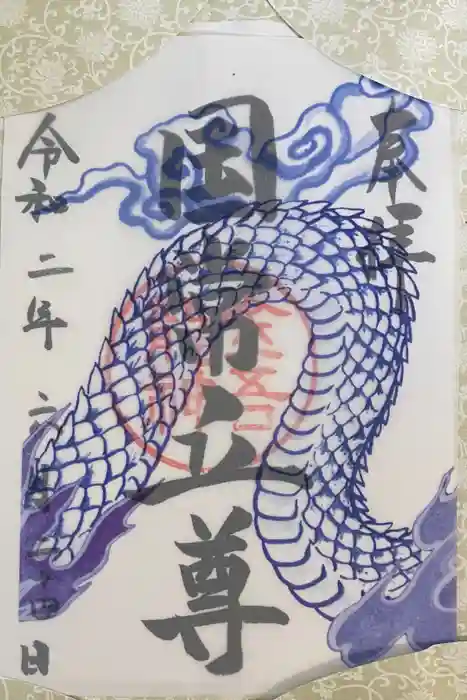 奉拝
国常立尊
令和二年 六月十四日